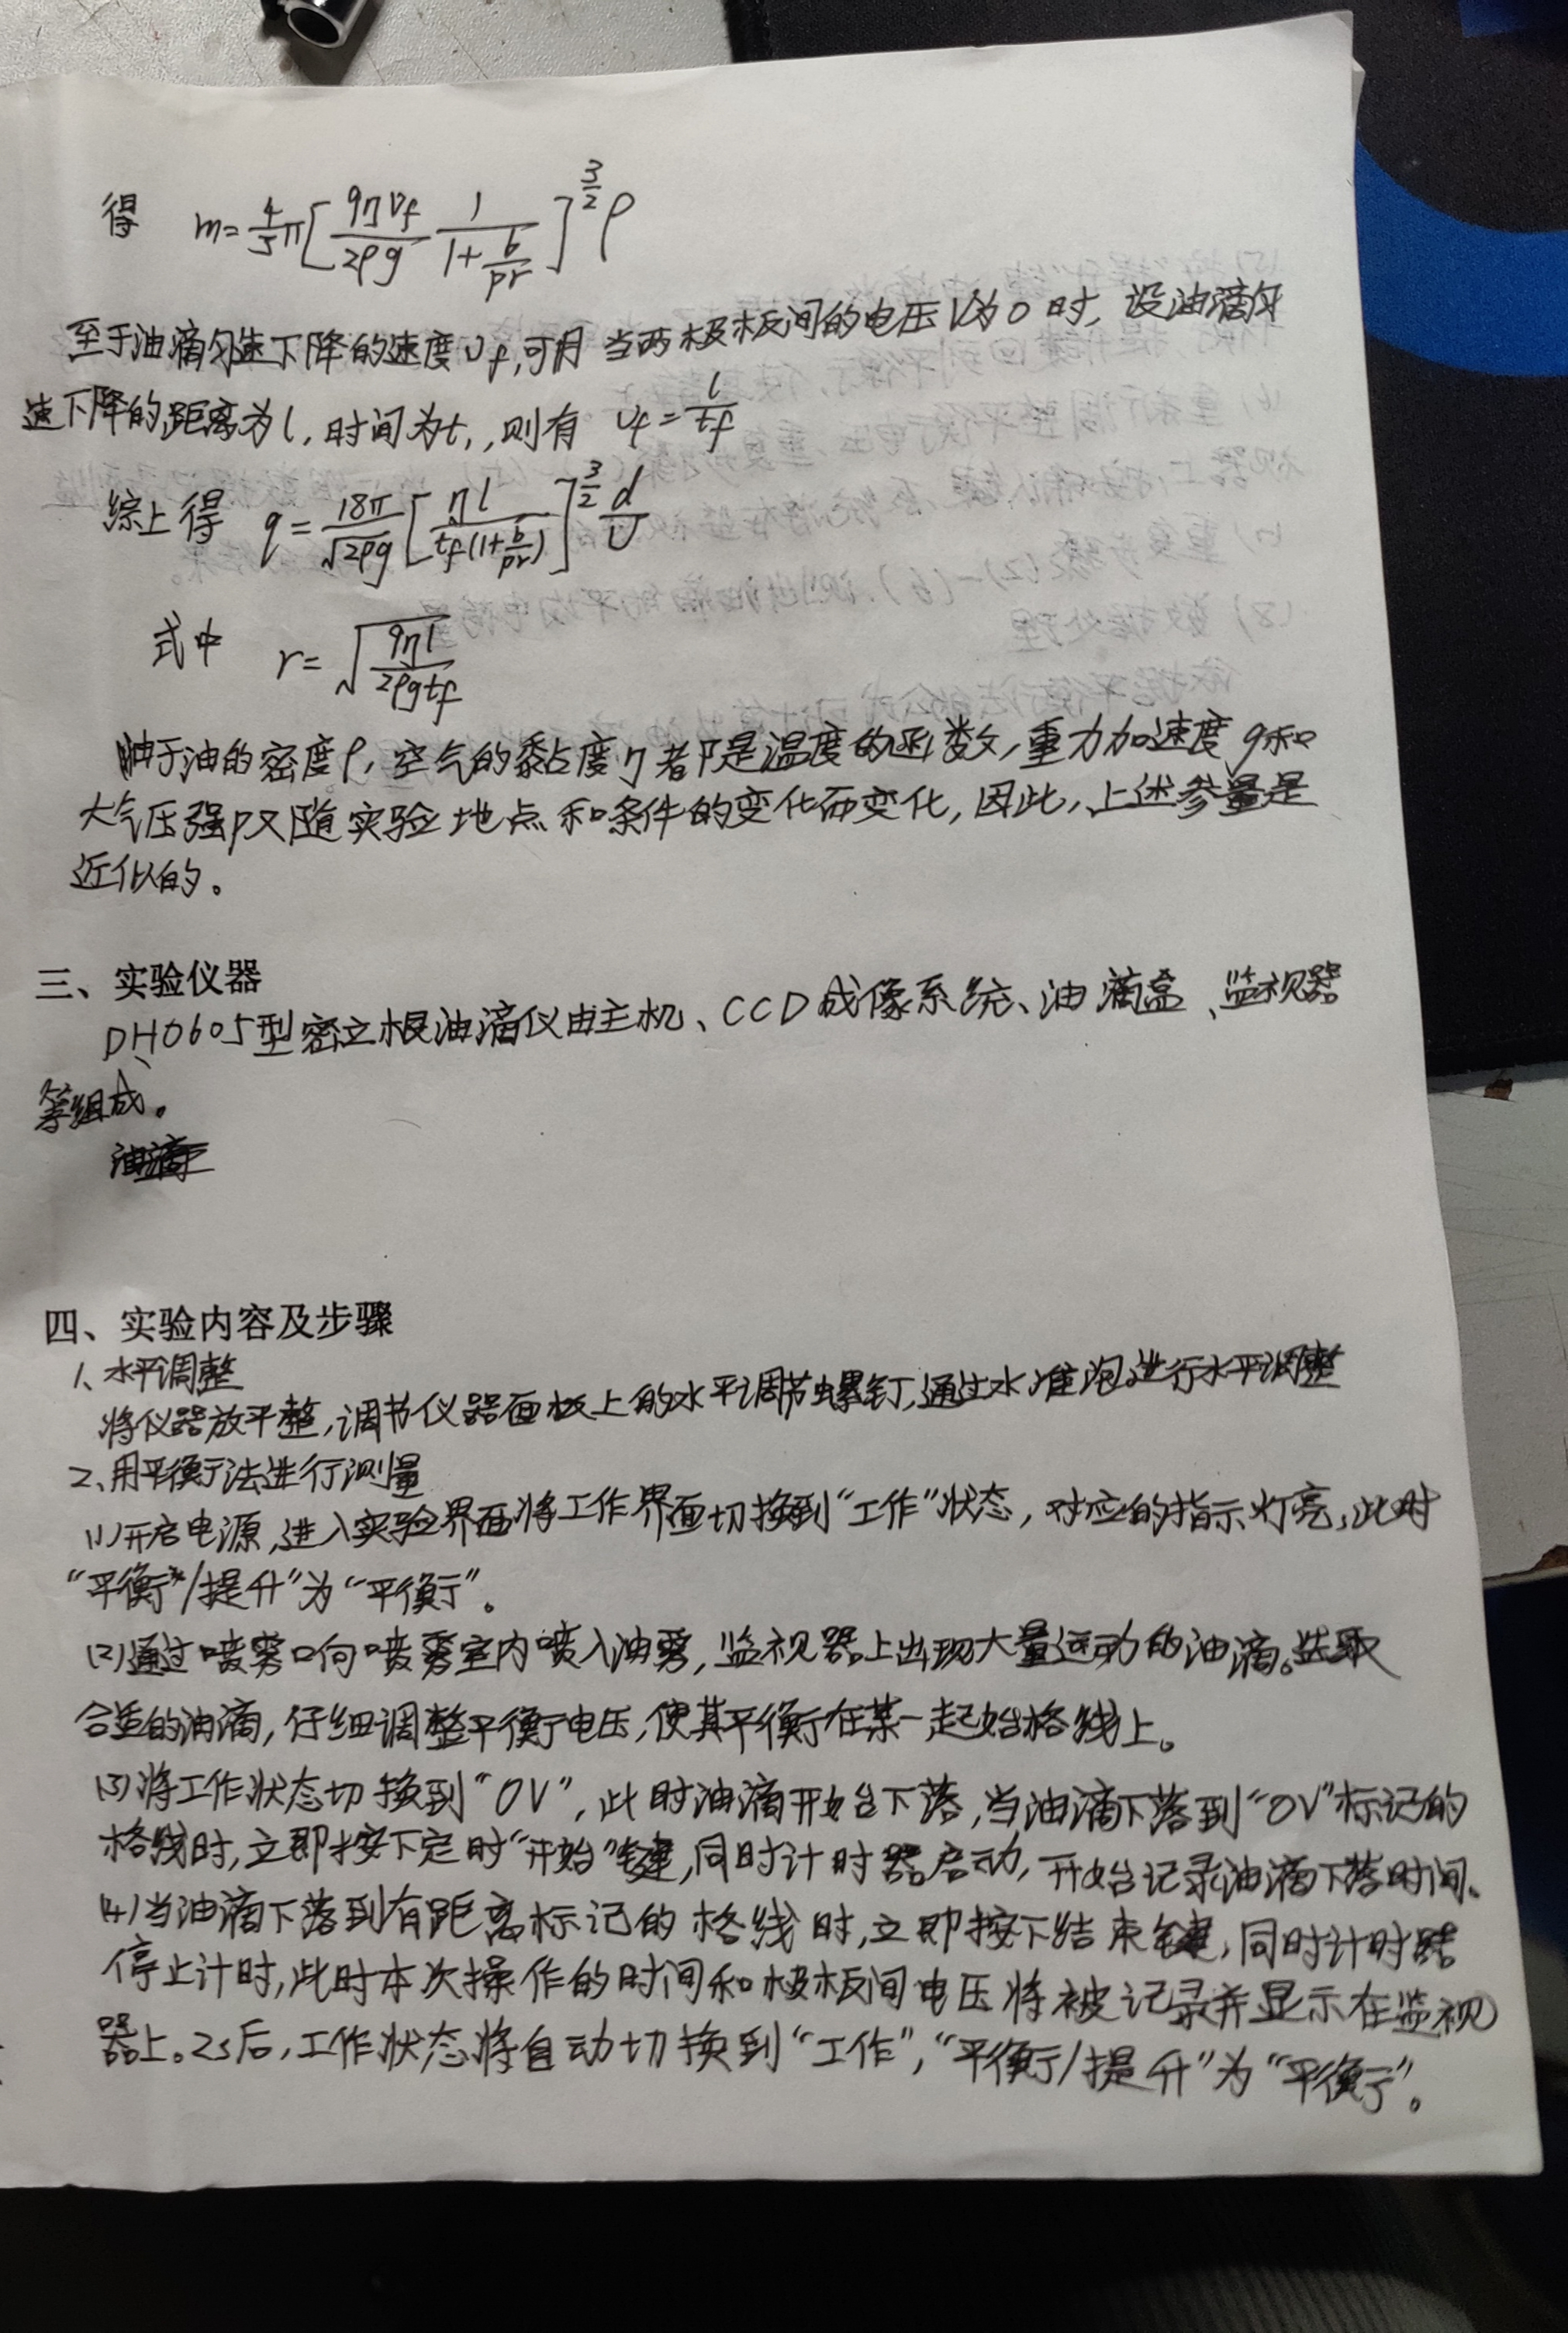 得 m=4/3π[9ηυf/2ρg 1/(1+b/pr)]^3/2 ρ
至于油滴匀速下降的速度υf,可用 当两极板间的电压U为0时, 设油滴匀
速下降的距离为l, 时间为t, , 则有 υf=l/tf
综上得 q=18π/√2ρg [ηl/tf(1+b/pr)]^3/2 d/U
式中 r=√9ηl/2ρgtf
由于油的密度ρ, 空气的黏度η都是温度的函数, 重力加速度g和
大气压强p又随实验地点和条件的变化而变化, 因此, 上述参量是
近似的。
三、实验仪器
DH0605型密立根油滴仪由主机、CCD成像系统、油滴盒、监视器
等组成。
四、实验内容及步骤
1、水平调整
将仪器放平整,调节仪器面板上的水平调节螺钉,通过水准泡进行水平调整
2、用平衡法进行测量
(1)开启电源,进入实验界面将工作界面切换到“工作”状态, 对应的指示灯亮,此时
“平衡”/提升”为“平衡”。
(2)通过喷雾口向喷雾室内喷入油雾, 监视器上出现大量运动的油滴。选取
合适的油滴, 仔细调整平衡电压, 使其平衡在某一起始格线上。
(3)将工作状态切换到“0V”, 此时油滴开始下落, 当油滴下落到“0V”标记的
格线时, 立即按下定时“开始”键,同时计时器启动, 开始记录油滴下落时间。
(4)当油滴下落到有距离标记的格线时,立即按下结束键, 同时计时器
停止计时,此时本次操作的时间和极板间电压将被记录并显示在监视
器上。2s后,工作状态将自动切换到“工作”,“平衡/提升”为“平衡”。